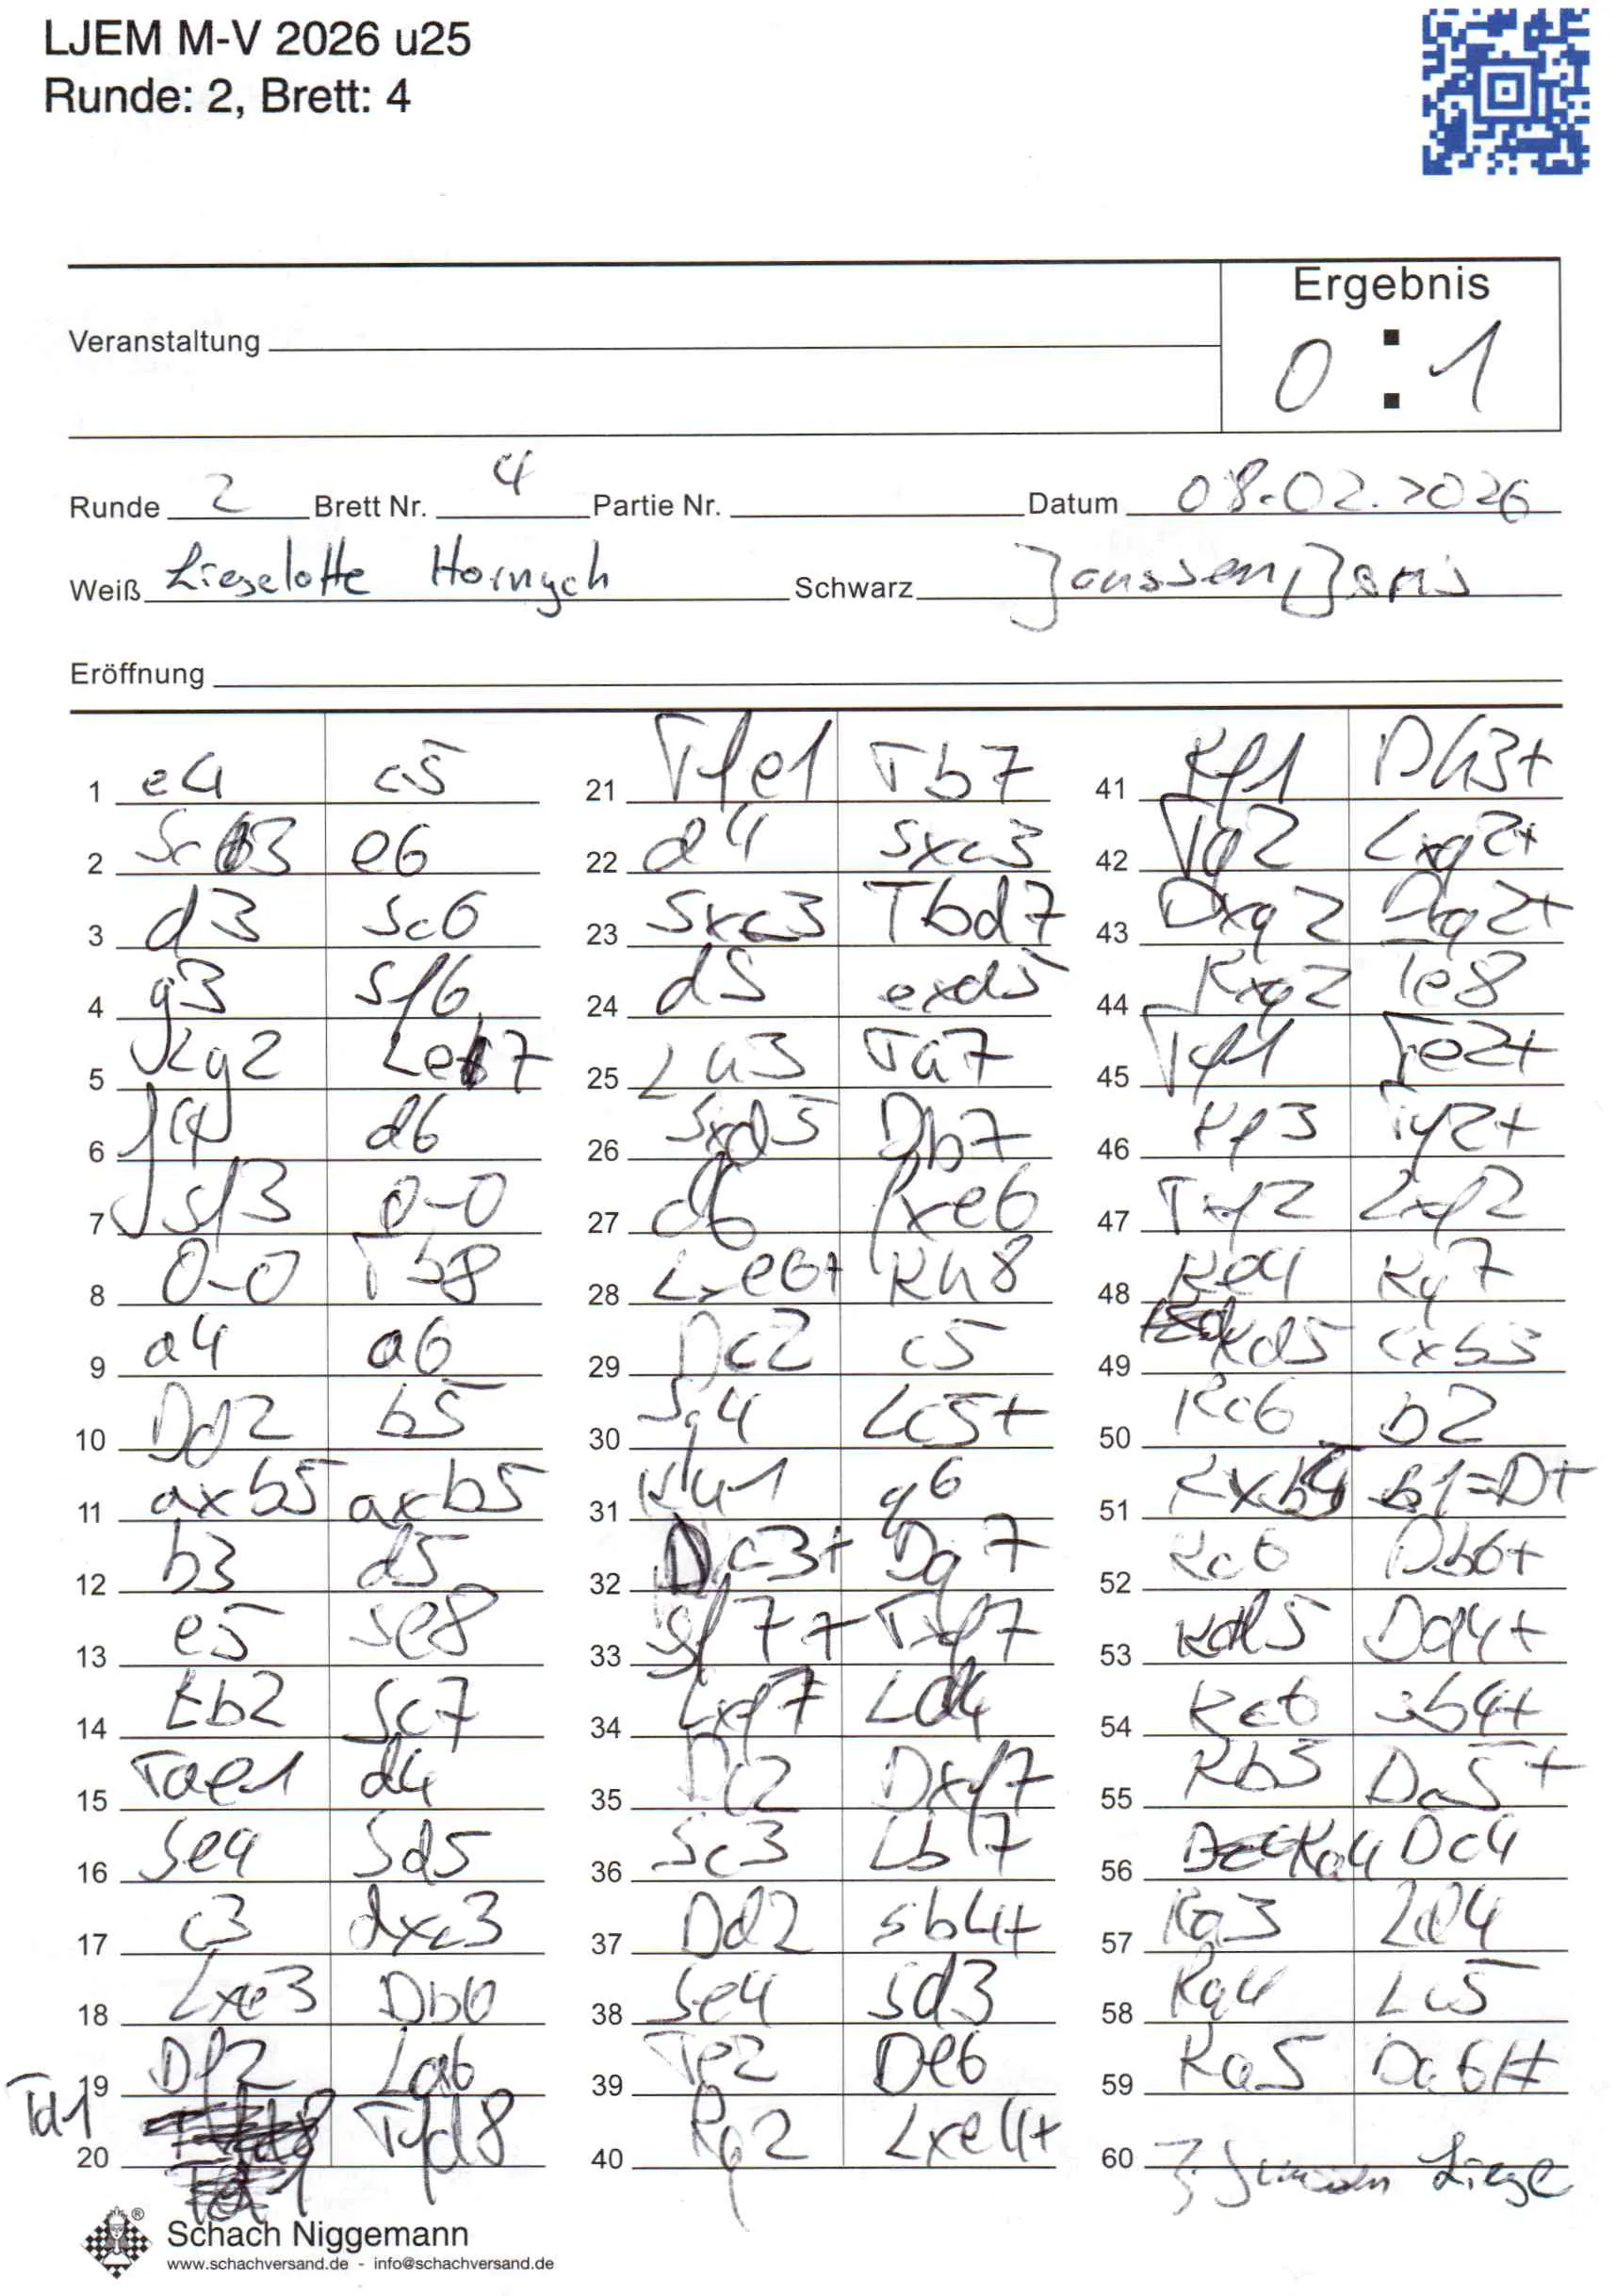 LJEM M-V 2026 u25
Runde: 2, Brett: 4
Ergebnis
Veranstaltung
0 : 1
Runde 2 Brett Nr. 4 Partie Nr. Datum 08.02.2026
Weiß Lieselotte Hornych Schwarz Janssen
Eröffnung
1 e4 c5
2 Sc3 e6
3 d3 Sc6
4 g3 Sf6
5 Lg2 Le7
6 f4 d6
7 Sf3 0-0
8 0-0 Tb8
9 a4 a6
10 Dd2 b5
11 axb5 axb5
12 b3 d5
13 e5 Se8
14 Lb2 Sc7
15 Tae1 d4
16 Se4 Sd5
17 c3 dxc3
18 Lxc3 Db6
19 Df2 La6
20 Td1 Tfd8
21 Tfe1 Tb7
22 d4 Sxc3
23 Sxc3 Tbd7
24 d5 exd5
25 Lh3 Ta7
26 Sxd5 Db7
27 e6 fxe6
28 Lxe6+ Kh8
29 Dc2 c5
30 Sg4 Lc5+
31 Kh1 g6
32 Dc3+ Dg7
33 Sf7+ Txf7
34 Lxf7 Ld4
35 Dc2 Dxf7
36 Sc3 Lb7
37 Dd2 Sb4+
38 Se4 Sd3
39 Te2 De6
40 Kg2 Lxe4+
41 Kf1 Dh3+
42 Tg2 Lxg2+
43 Dxg2 Dxg2+
44 Kxg2 Te8
45 Tf1 Te2+
46 Kf3 Tf2+
47 Txf2 Lxf2
48 Ke4 Kg7
49 Kd5 cxb3
50 Kc6 b2
51 Kxb5 b1=D+
52 Kc6 Db6+
53 Kd5 Dd4+
54 Kc6 Sb4+
55 Kb5 Da5+
56 Ka4 Dc4
57 Ka3 Ld4
58 Ka4 Lc5
59 Ka5 Da6#
60 Liese
Schach Niggemann
www.schachversand.de - info@schachversand.de